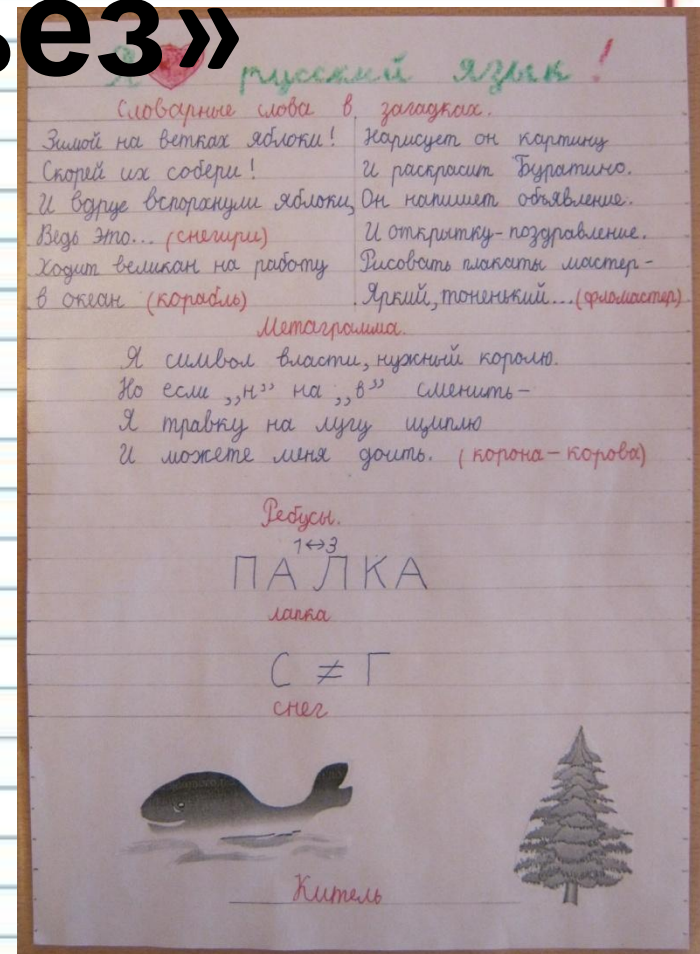 ез»
Я русский язык!
Словарные слова в загадках.
Зимой на ветках яблоки!
Скорей их собери!
И вдруг вспорхнули яблоки,
Ведь это... (снегири)
Ходит великан на работу
в океан (корабль)
Нарисует он картину
И раскрасит Буратино.
Он напишет объявление.
И открытку-поздравление.
Рисовать плакаты мастер-
Яркий, тоненький... (фломастер)
Метаграмма.
Я символ власти, нужный королю.
Но если „н” на „в” сменить-
Я травку на лугу щиплю
И можете меня доить. (корона-корова)
Ребусы.
1↔3
ПАЛКА
лапка
С ≠ Г
снег
Китель